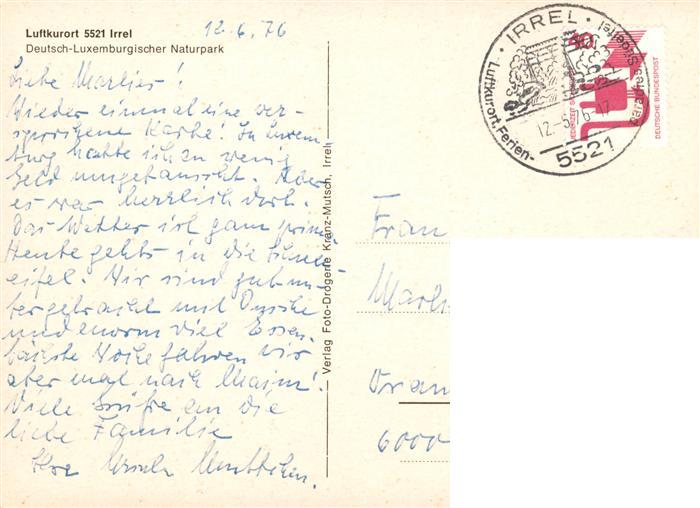 Luftkurort 5521 Irrel
Deutsch-Luxemburgischer Naturpark
12.6.76
Liebe Marlies!
Wieder einmal eine ver-
sprochene Karte! In Luxem-
burg hatte ich zu wenig
Geld umgetauscht. Aber
es war herrlich dort.
Das Wetter ist ganz prima
Heute gehts in die
eifel. Wir sind gut un-
tergebracht mit Dusche
und enorm viel Essen.
Nächste Woche fahren wir
aber mal nach Mainz!
Viele Grüße an die
liebe Familie
Ihre Ursula
Verlag Foto-Drogerie Kranz-Mutsch, Irrel
· IRREL ·
Luftkurort, Ferien-
Südeifel
12.-5.76-17
5521
DEUTSCHE BUNDESPOST
Frau
Marli
Oran
6000